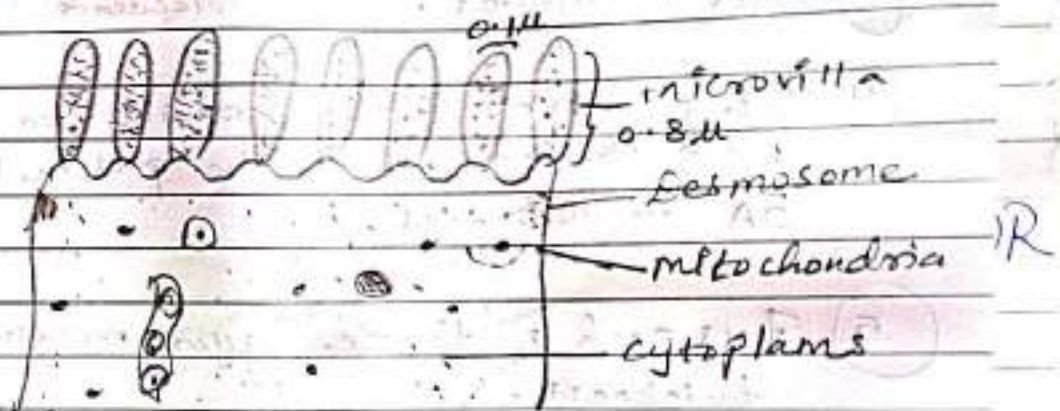 0.1µ
microvilla
0.8µ
Desmosome
mitochondria
cytoplams